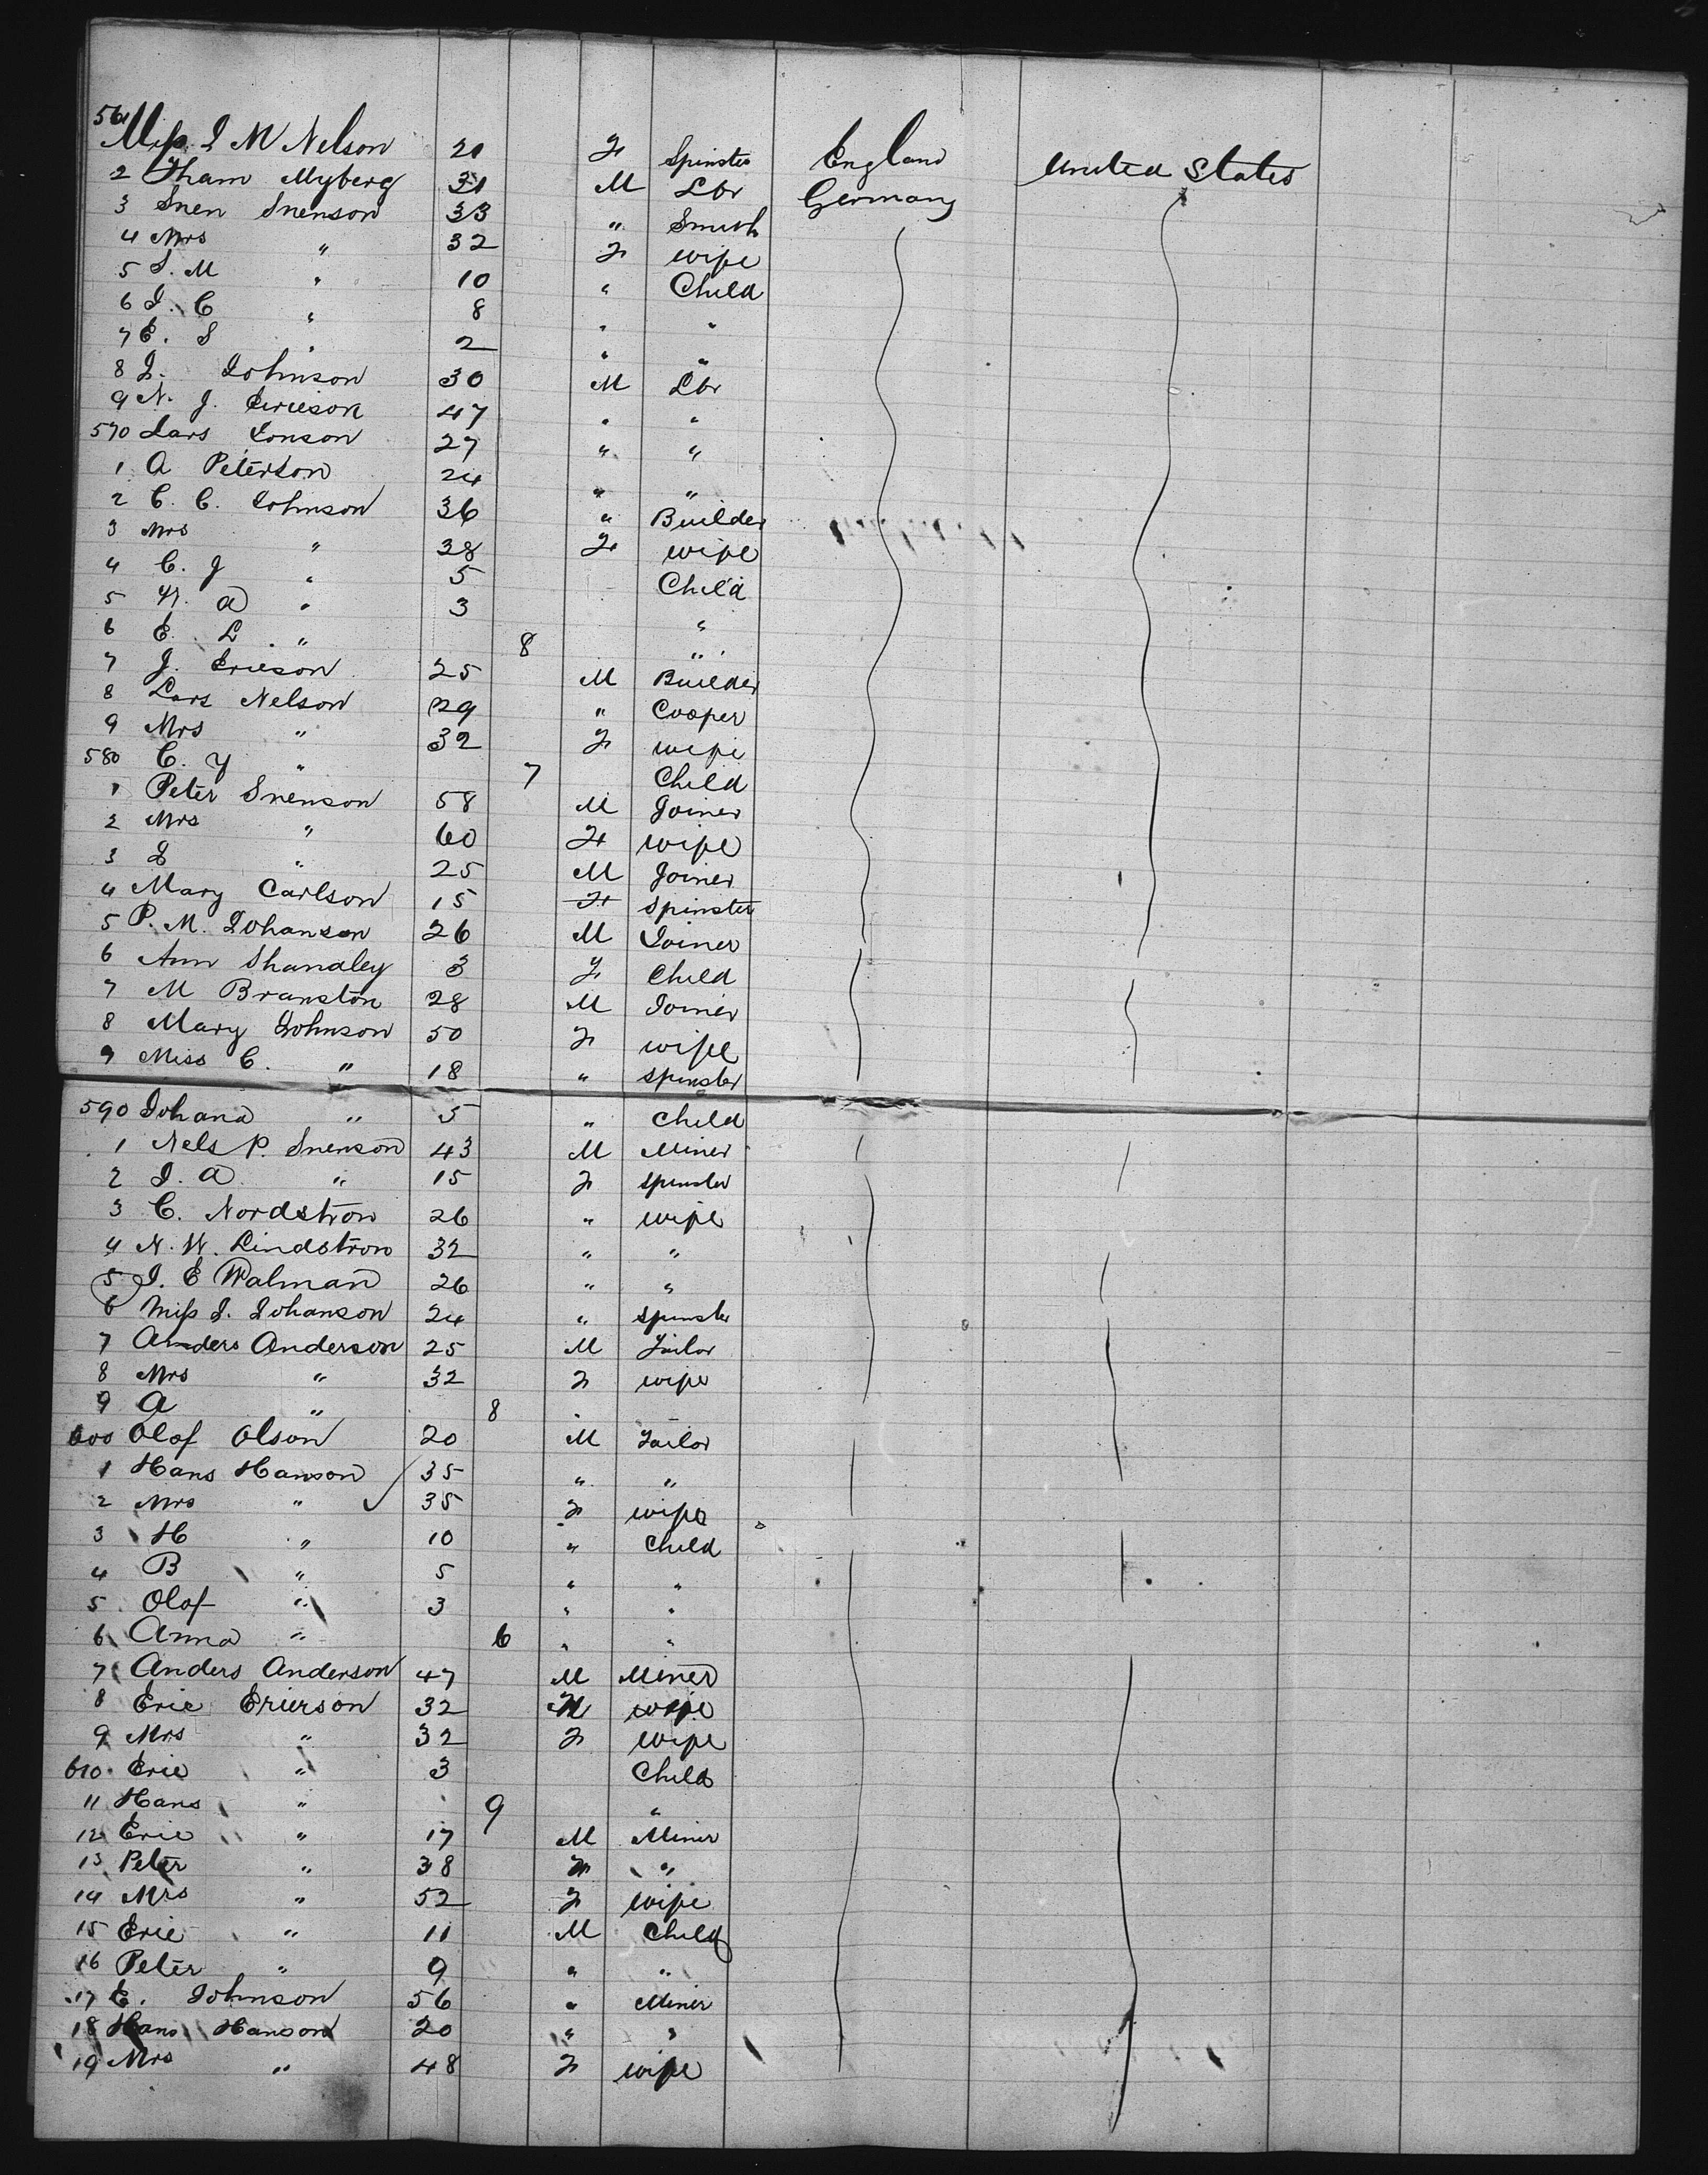 561 Miss I M Nelson 21 F Spinster England United States
2 Tham Myberg 31 M Lbr Germany
3 Snen Snenson 33 " Smith
4 Mrs " 32 F wife
5 S. M " 10 " Child
6 I. C " 8 " "
7 E. S " 2 " "
8 I. Johnson 30 M Lbr
9 N. J. Ericson 47 " "
570 Lars Jonson 27 " "
1 A Peterson 24 " "
2 C. C. Johnson 36 " Builder
3 Mrs " 38 F wife
4 C. J " 5 Child
5 H. A " 3 "
6 E. L " 8 "
7 J. Ericson 25 M Builder
8 Lars Nelson 29 " Cooper
9 Mrs " 32 F wife
580 C. Y " 7 Child
1 Peter Snenson 58 M Joiner
2 Mrs " 60 F wife
3 L " 25 M Joiner
4 Mary Carlson 15 F Spinster
5 P. M. Johanson 26 M Joiner
6 Ann Shandley 3 F Child
7 M Branston 28 M Joiner
8 Mary Johnson 50 F wife
9 Miss C. " 18 " Spinster
590 Johana " 5 " Child
1 Nels P. Snenson 43 M Miner
2 I. A " 15 F Spinster
3 C. Nordstron 26 " wife
4 N. W. Lindstron 32 " "
5 J. E Walman 26 " "
6 Miss I. Johanson 24 " Spinster
7 Anders Anderson 25 M Tailor
8 Mrs " 32 F wife
9 A " 8 "
600 Olof Olson 20 M Tailor
1 Hans Hanson 35 " "
2 Mrs " 35 F wife
3 H " 10 " Child
4 B " 5 " "
5 Olof " 3 " "
6 Anna " 6 " "
7 Anders Anderson 47 M Miner
8 Eric Erierson 32 M wife
9 Mrs " 32 F wife
610 Eric " 3 Child
11 Hans " 9 "
12 Eric " 17 M Miner
13 Peter " 38 M "
14 Mrs " 52 F wife
15 Eric " 11 M Child
16 Peter " 9 " "
17 E. Johnson 56 " Miner
18 Hans Hanson 20 " "
19 Mrs " 48 F wife